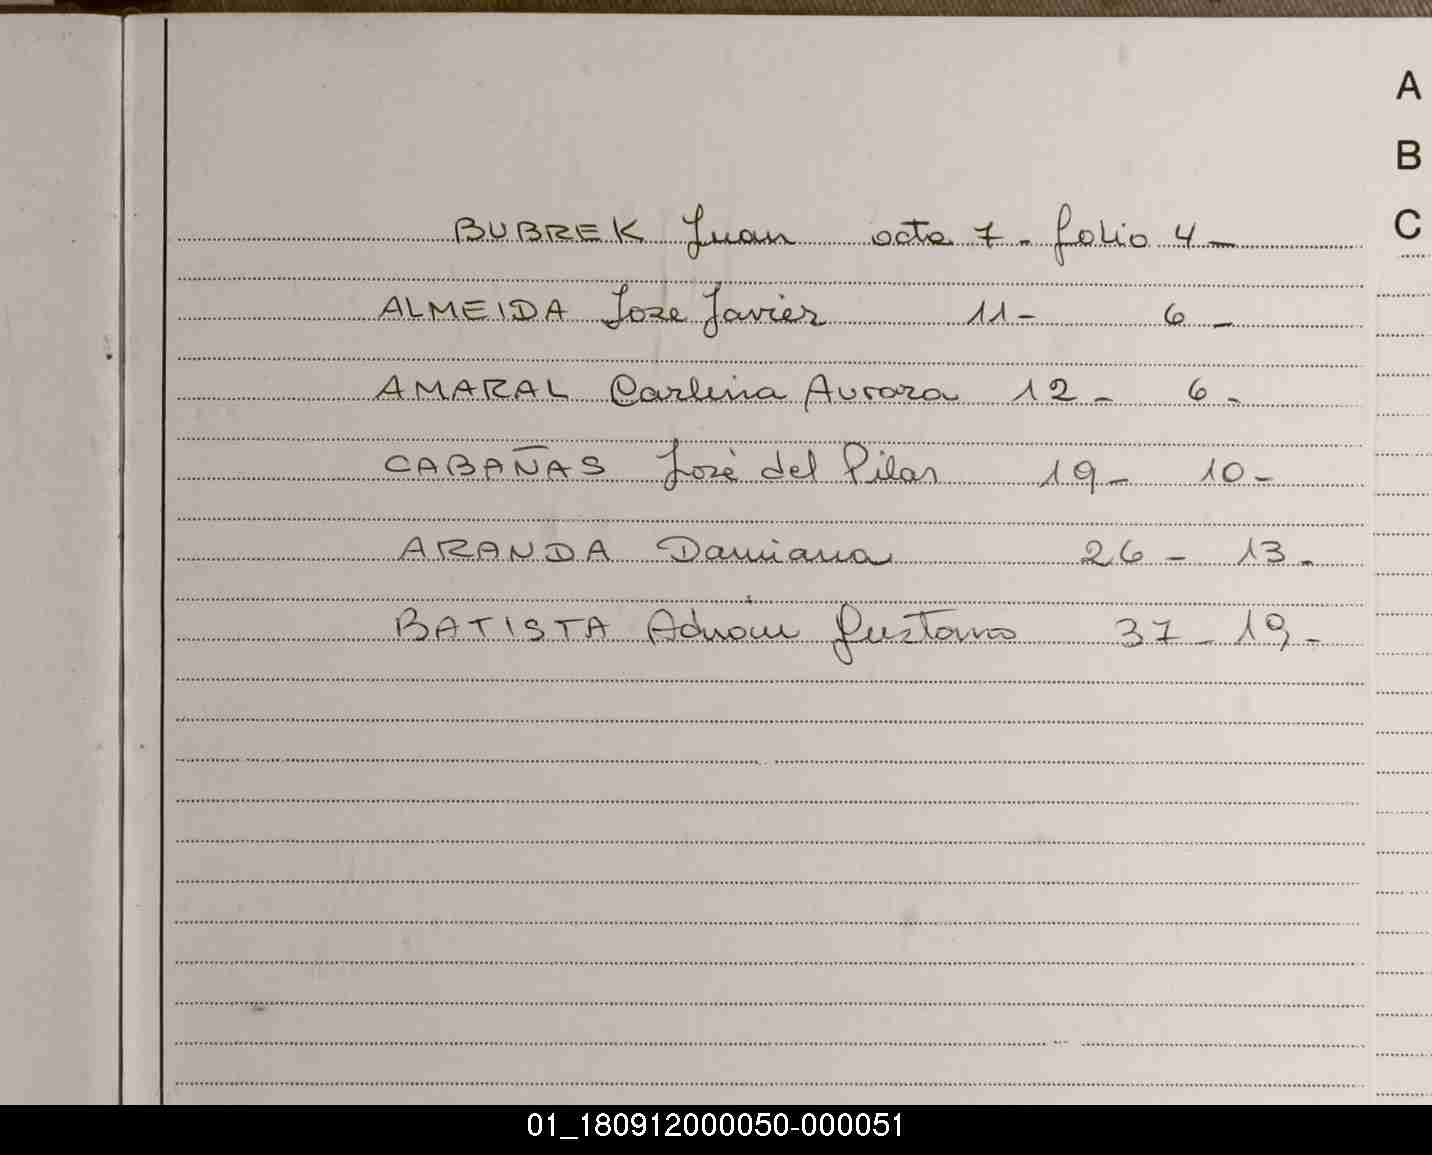 A
B
C
BUBREK Juan acta 7 - folio 4 -
ALMEIDA Jose Javier 11 - 6 -
AMARAL Carlina Aurora 12 - 6 -
CABAÑAS José del Pilar 19 - 10 -
ARANDA Damiana 26 - 13 -
BATISTA Adrián Gustavo 37 - 19 -
01_180912000050-000051